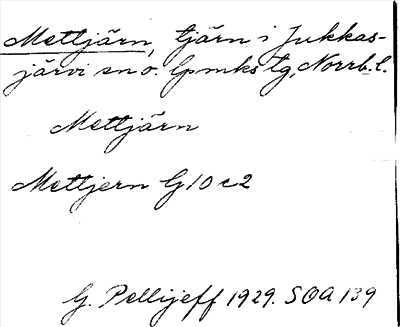 Mettjärn, tjärn i Jukkas-
järvi sn o. lpmks tg, Norrb. l.
Mettjärn
Mettjern G10 c2
G. Pellijeff 1929. SOA 139